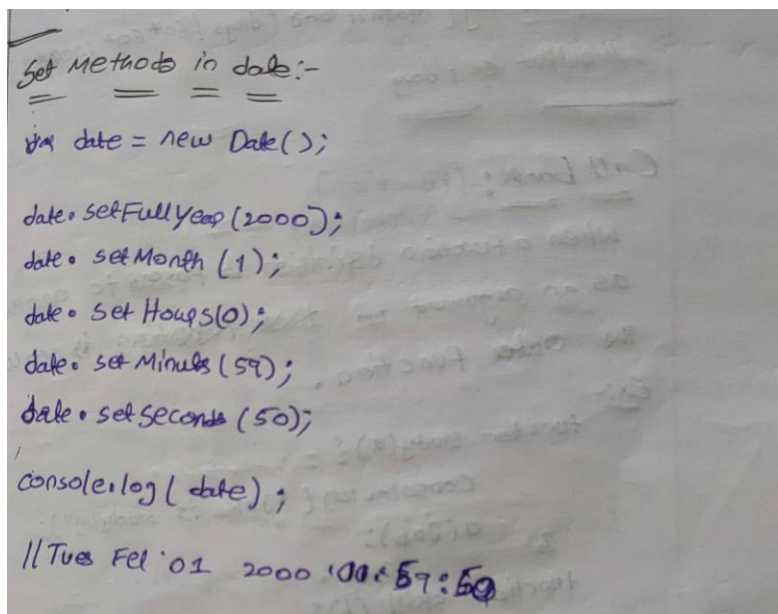 Set Methods in date:-
var date = new Date();
date. setFullYear(2000);
date. setMonth (1);
date. set Hours(0);
date. set Minutes (59);
date. set seconds (50);
console.log( date) ;
//Tues Feb 01 2000 :00:59:50